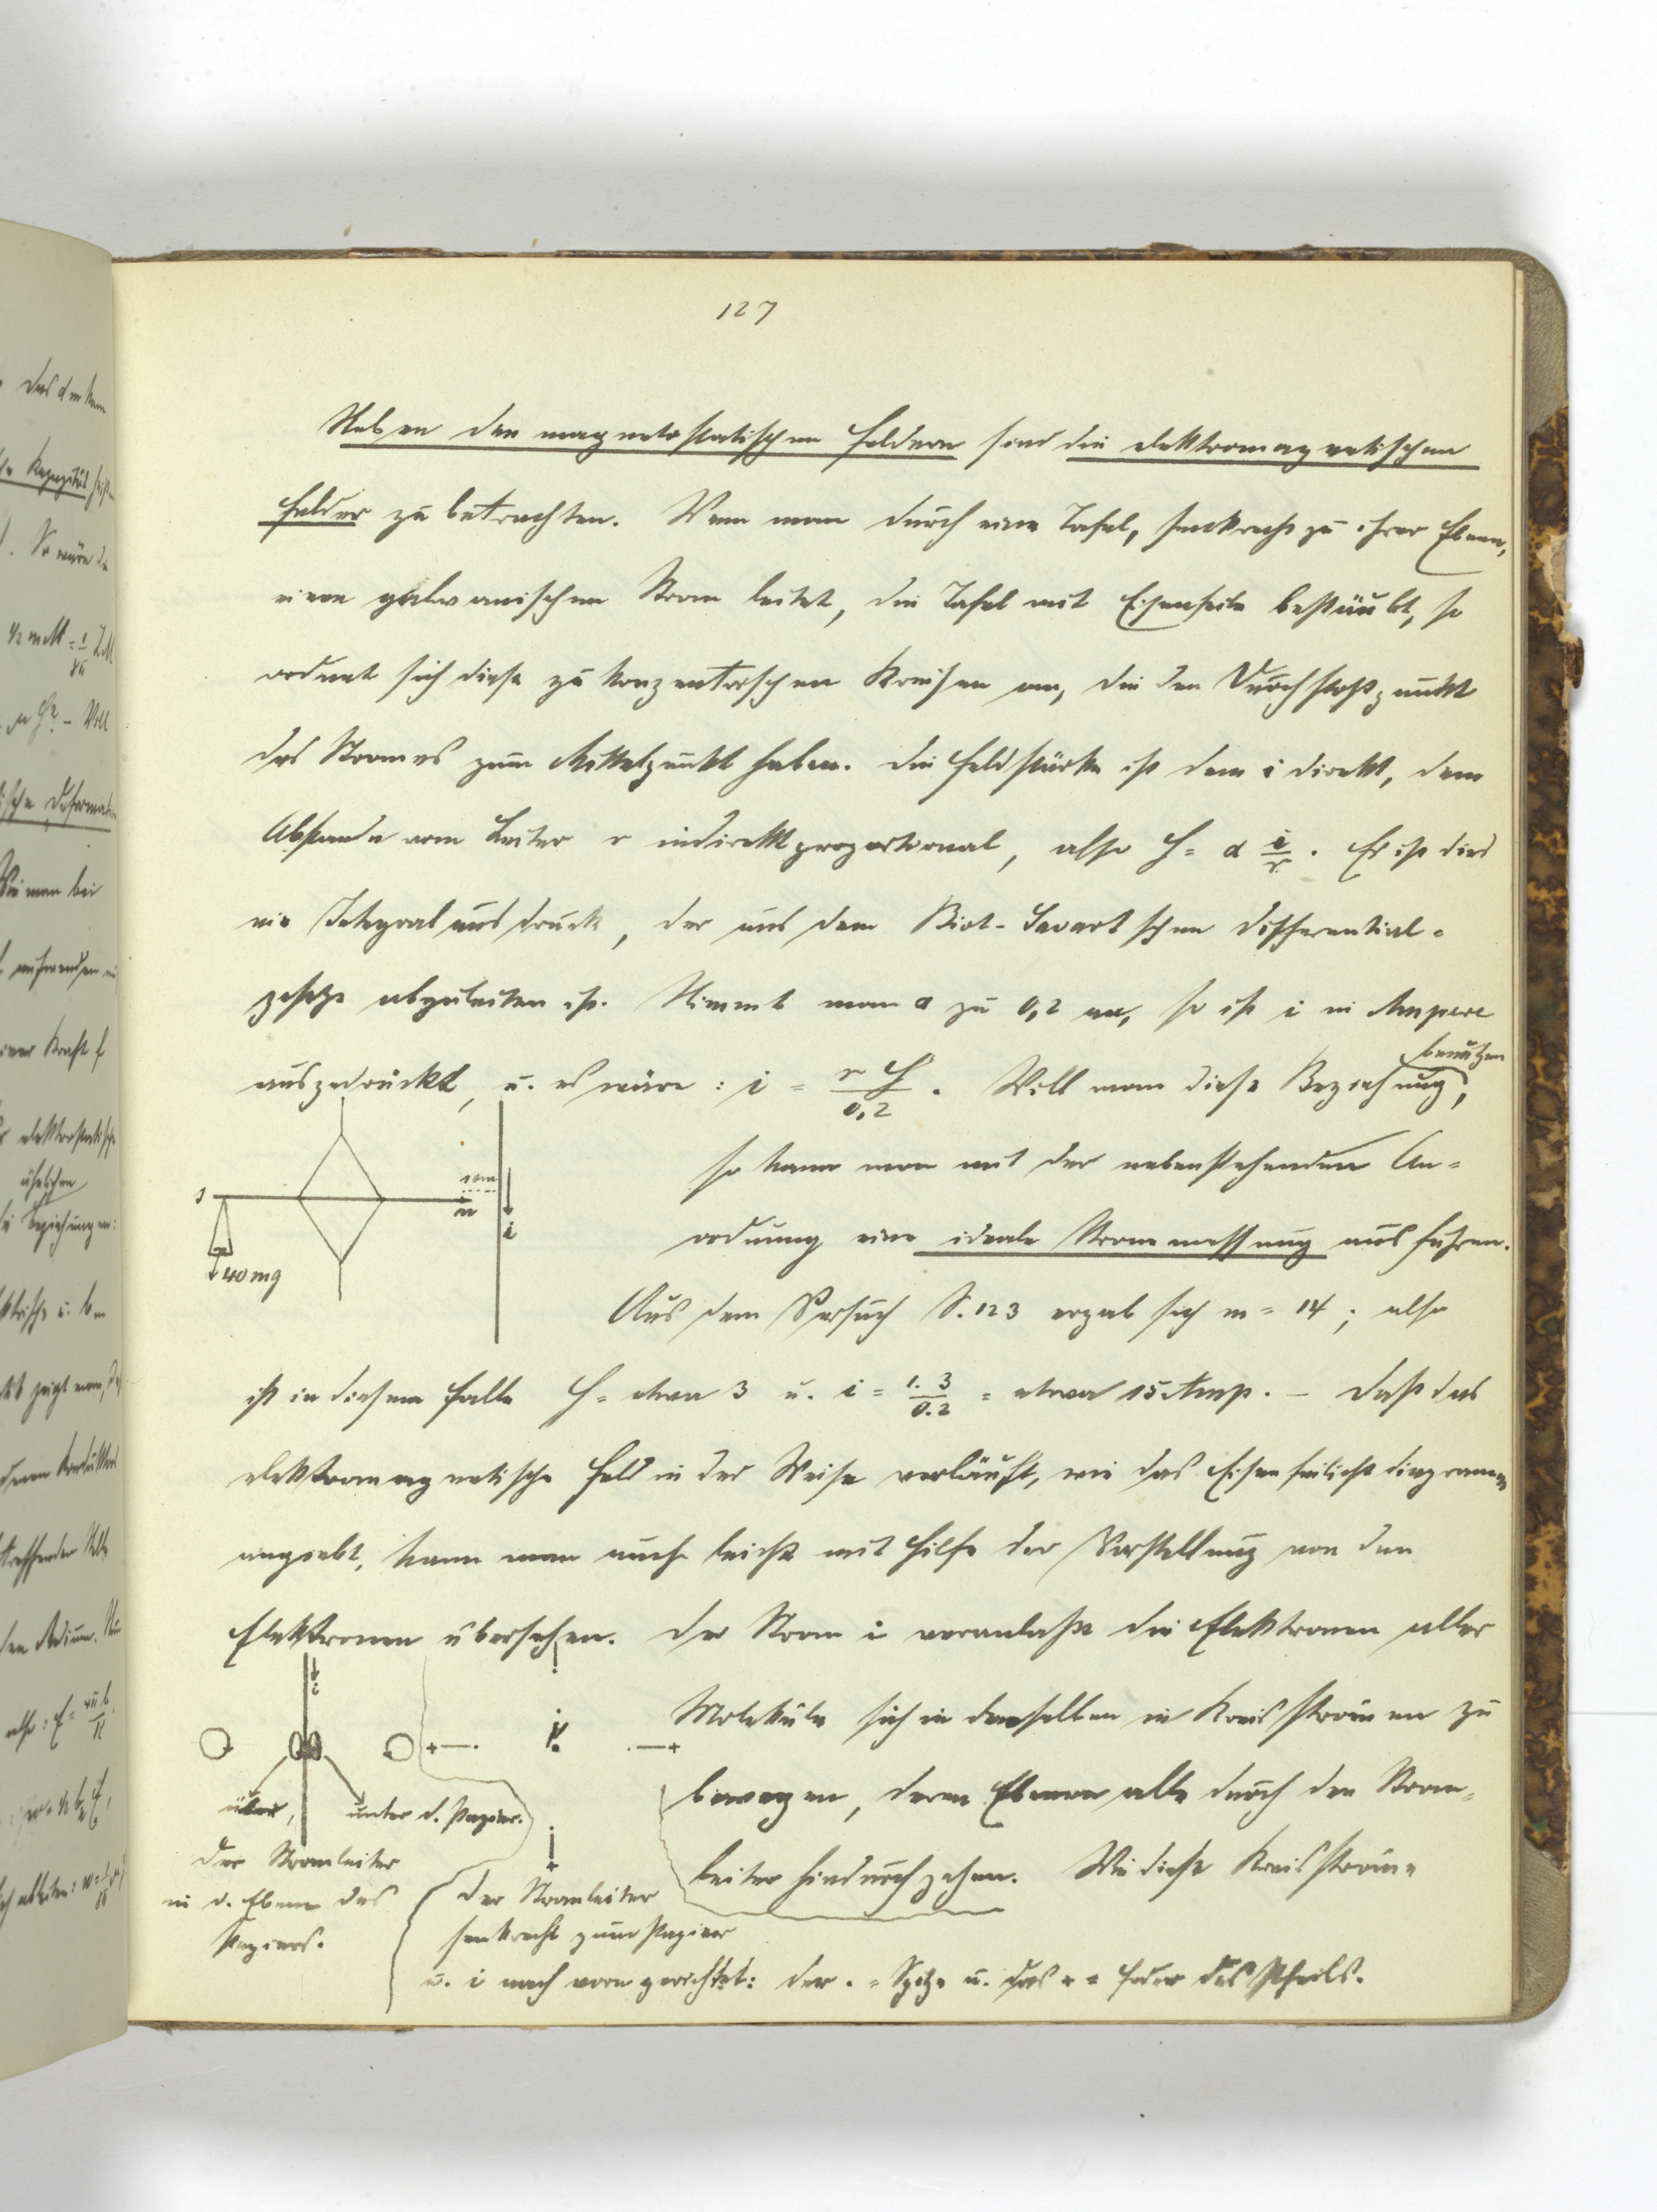 127
Neben den magnetostatischen Feldern sind die elektromagnetischen
Felder zu betrachten. Wenn man durch eine Tafel, senkrecht zu ihrer Ebene,
einen galvanischen Strom leitet, die Tafel mit Eisenfeile bestäubt, so
ordnet sich diese zu konzentrischen Kreisen an, die den Durchstoßpunkt
des Stromes zum Mittelpunkt haben. Die Feldstärke ist dem i direkt, dem
Abstande vom Leiter r indirekt proportional, also H = α i/r. Es ist dies
ein Integralausdruck, der aus dem Biot-Savartschen Differential-
gesetze abzuleiten ist. Nimmt man α zu 0,2 an, so ist i in Ampere
ausgedrückt, u. es wäre: i = r H / 0,2. Will man diese Beziehung benützen,
so kann man mit der nebenstehenden An-
ordnung eine ideale Strommessung ausführen.
s
1 cm
n
i
40 mg
Aus dem Versuch S. 123 ergab sich m = 14; also
ist in diesem Falle H = etwa 3 u. i = 1. 3 / 0.2 = etwa 15 Amp. – Daß das
elektromagnetische Feld in der Weise verläuft, wie das Eisenfeilichtdiagramm
angiebt, kann man auch leicht mit Hilfe der Vorstellung von den
Elektronen übersehen. Der Strom i veranlaßt die Elektronen aller
Moleküle sich in denselben in Kreisströmen zu
bewegen, deren Ebenen alle durch den Strom-
leiter hindurchgehen. Wie diese Kreisströme
i
über, unter d. Papier.
Der Stromleiter
in d. Ebene des
Papiers.
Der Stromleiter
senkrecht zum Papier
u. i nach vorn gerichtet: der . = Spitze u. das + = Feder des Pfeils.